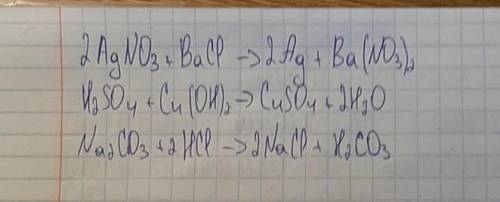 2AgNO3 + BaCl → 2Ag + Ba(NO3)2
H2SO4 + Cu(OH)2 → CuSO4 + 2H2O
Na2CO3 + 2HCl → 2NaCl + H2CO3